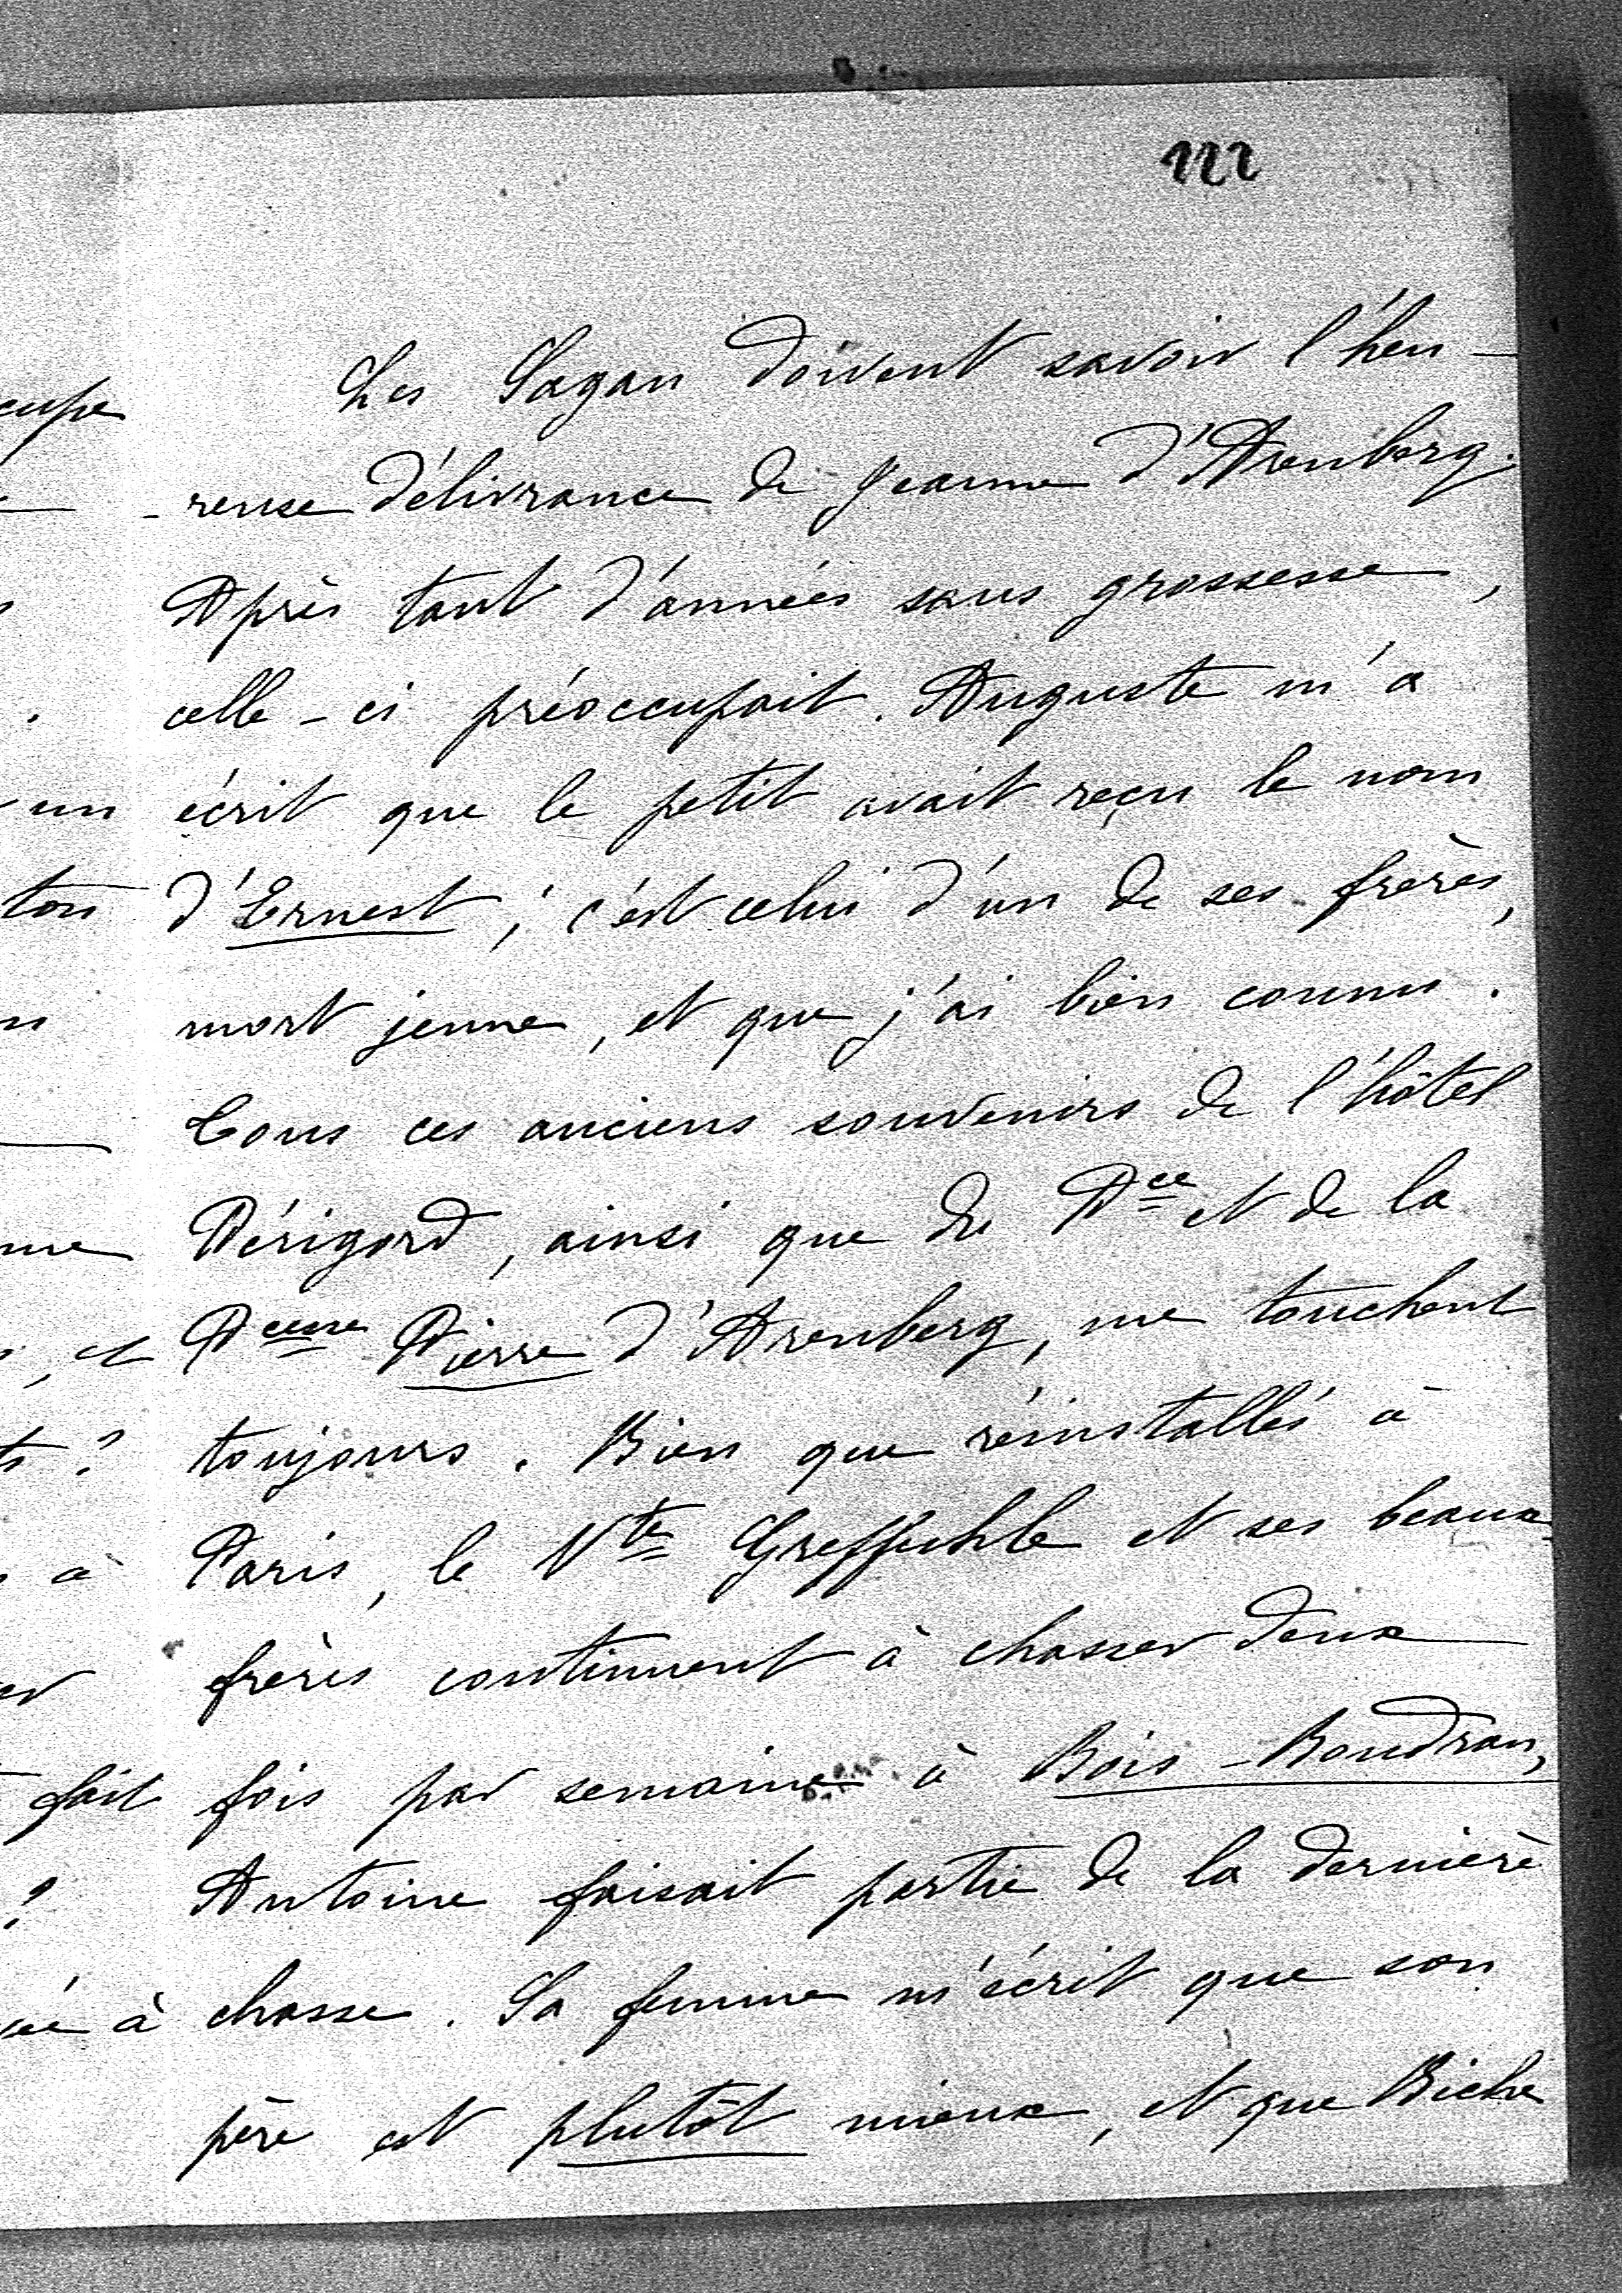 222
Les Sagan doivent savoir l'heu-
-reuse délivrance de Jeanne d'Arenberg.
Après tant d'années sans grossesse,
celle-ci préoccupait. Auguste m'a
écrit que le petit avait reçu le nom
d'Ernest; c'est celui d'un de ses frères,
mort jeune, et que j'ai bien connu.
Tous ces anciens souvenirs de l'hôtel
Périgord, ainsi que du Pce et de la
Pcesse Pierre d'Arenberg, me touchent
toujours. Bien que réinstallés à
Paris, le Vte Greffuhle et ses beaux-
frères continuent à chasser deux
fois par semaine à Bois-Boudran,
Antoine faisait partie de la dernière
chasse. Sa femme m'écrit que son
père est plutôt mieux, et que Biche